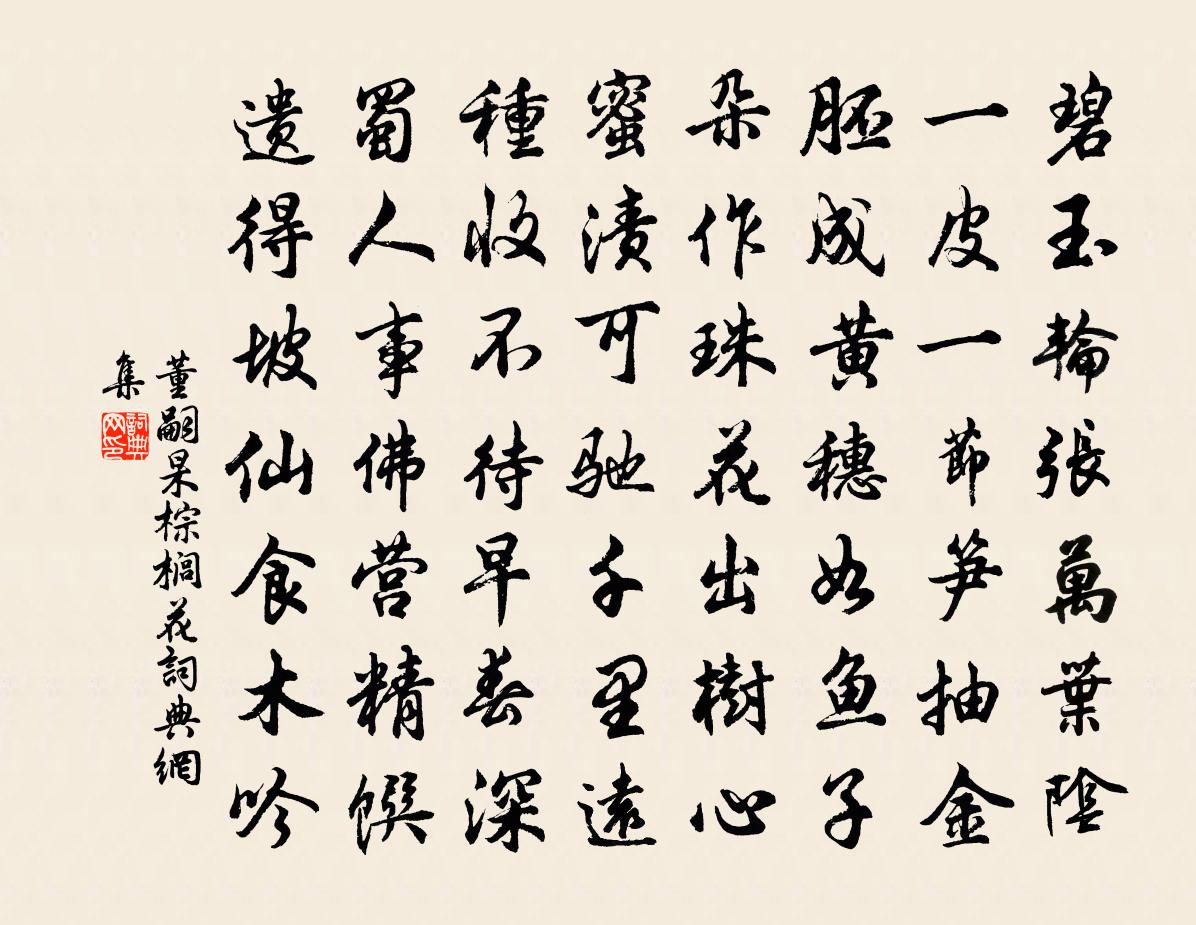 碧玉輪張萬葉陰
一皮一節笋抽金
胚成黄穗如魚子
朶作珠花出樹心
蜜漬可馳千里遠
種收不待早春深
蜀人事佛营精饌
遗得坡仙食木吟
董嗣杲棕榈花詞典網
集
詞典网印